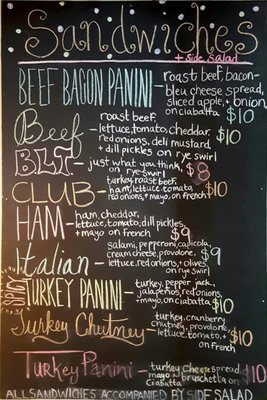 Sandwiches
+ side salad
BEEF BACON PANINI- roast beef, bacon-
bleu cheese spread,
sliced apple, + onion,
on ciabatta $10
Beef - roast beef,
lettuce, tomato, cheddar,
red onions, deli mustard,
+ dill pickles on rye swirl $10
BLT - just what you think,
on rye swirl $8
CLUB - turkey, roast beef,
ham, lettuce, tomato
red onions, + mayo, on french $10
HAM - ham, cheddar,
lettuce, tomato, dill pickles,
+ mayo on french $9
Italian - salami, pepperoni, capicola,
cream cheese, provolone, $9
lettuce, red onions, + olives,
on rye swirl
SPICY TURKEY PANINI - turkey, pepper jack,
jalapeños, red onions,
+ mayo, on ciabatta $10
Turkey Chutney - turkey, cranberry
chutney, provolone,
lettuce, tomato, + $10
on french
Turkey Panini - turkey, cheese spread,
mayo, bruschetta on
ciabatta $10
ALL SANDWICHES ACCOMPANIED BY SIDE SALAD